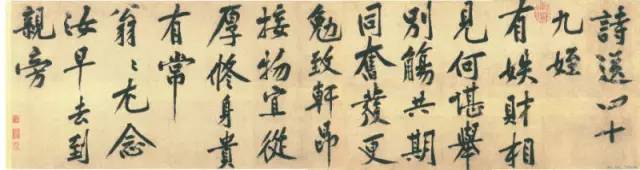 詩送四十
九姪
有姪財相
見何堪舉
別觴共期
同奮發更
勉致軒昂
接物宜從
厚脩身貴
有常
翁〻尤念
汝早去到
親旁